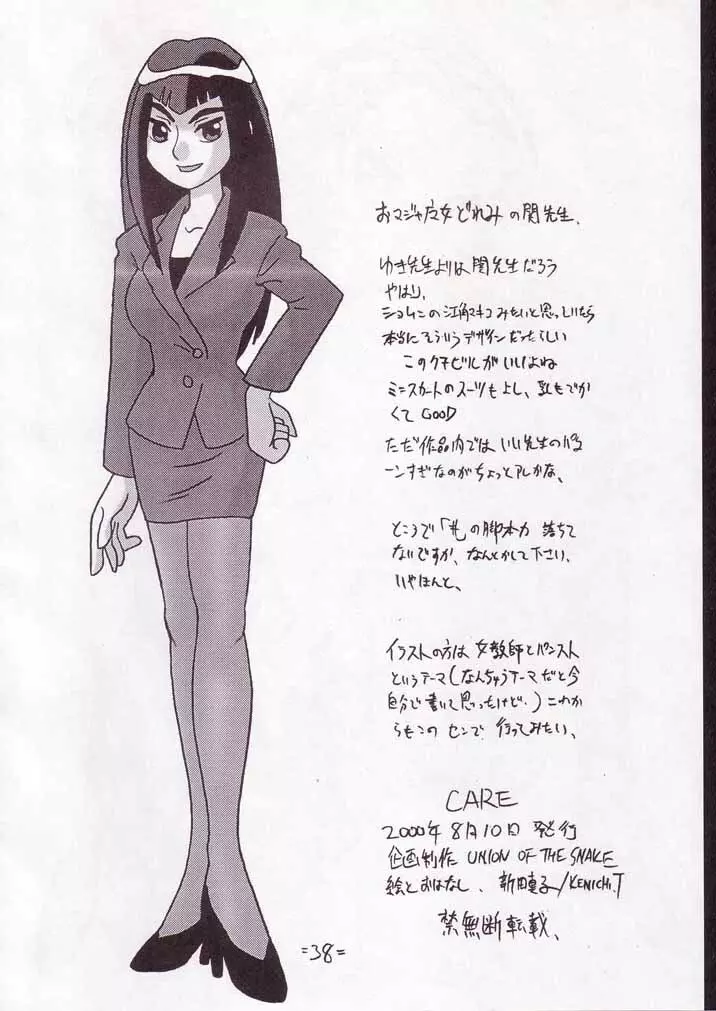 おジャ魔女どれみの関先生、
ゆき先生よりは関先生だろう
やはり、
ショムニの江角マキコみたいと思っていたら
本当にそういうデザインだったらしい
このクチビルがいいよね
ミニスカートのスーツもよし、乳もでか
くてGOOD
ただ作品内ではいい先生のパター
ンすぎなのがちょっとアレかな、
ところで「#」の脚本力落ちて
ないですか、なんとかして下さい、
いやほんと、
イラストの方は女教師とパンスト
というテーマ(なんちゅうテーマだと今
自分で書いて思ったけど・)これか
らもこのセンで行ってみたい、
CARE
2000年8月10日発行
企画制作 UNION OF THE SNAKE
絵とおはなし、新田真子/KENICHI.T
禁無断転載、
=38=